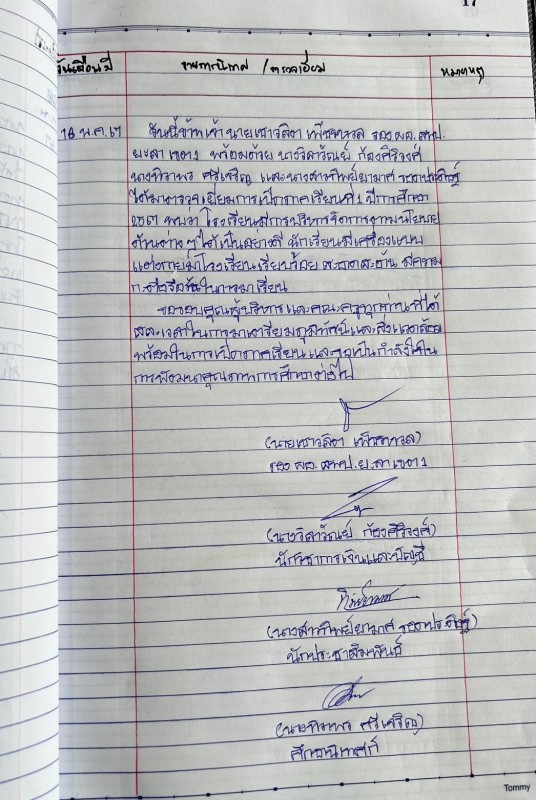 17
วันเดือนปี รายการนิเทศ / ตรวจเยี่ยม หมายเหตุ
16 พ.ค. 67 วันนี้ข้าพเจ้า นายเชาวลิตา เพ็ชรนวล รอง ผอ. สพป.
ยะลา เขต 1 พร้อมด้วย นางวิลาวัณย์ ก้องศิริวงศ์
นางทิวาพร ศรีเจริญ และนางสาวทิพย์ยามาศ
ได้มาตรวจเยี่ยมการเปิดภาคเรียนที่ 1 ปีการศึกษา
2567 พบว่า โรงเรียนมีการบริหารจัดการตามนโยบาย
ด้านต่าง ๆ ได้เป็นอย่างดี นักเรียนมีเครื่องแบบ
แต่งกายมาโรงเรียนเรียบร้อย สะอาดสะอ้าน มีความ
กระตือรือร้นในการมาเรียน
ขอขอบคุณผู้บริหารและคณะครูทุกท่านที่ได้
สละเวลาในการมาเตรียมภูมิทัศน์และสิ่งแวดล้อม
พร้อมในการเปิดภาคเรียนและขอเป็นกำลังใจใน
การพัฒนาคุณภาพการศึกษาต่อไป
(นายเชาวลิตา เพ็ชรนวล)
รอง ผอ. สพป. ยะลา เขต 1
(นางวิลาวัณย์ ก้องศิริวงศ์)
นักวิชาการเงินและบัญชี
(นางสาวทิพย์ยามาศ
นักประชาสัมพันธ์
(นางทิวาพร ศรีเจริญ)
ศึกษานิเทศก์
Tommy